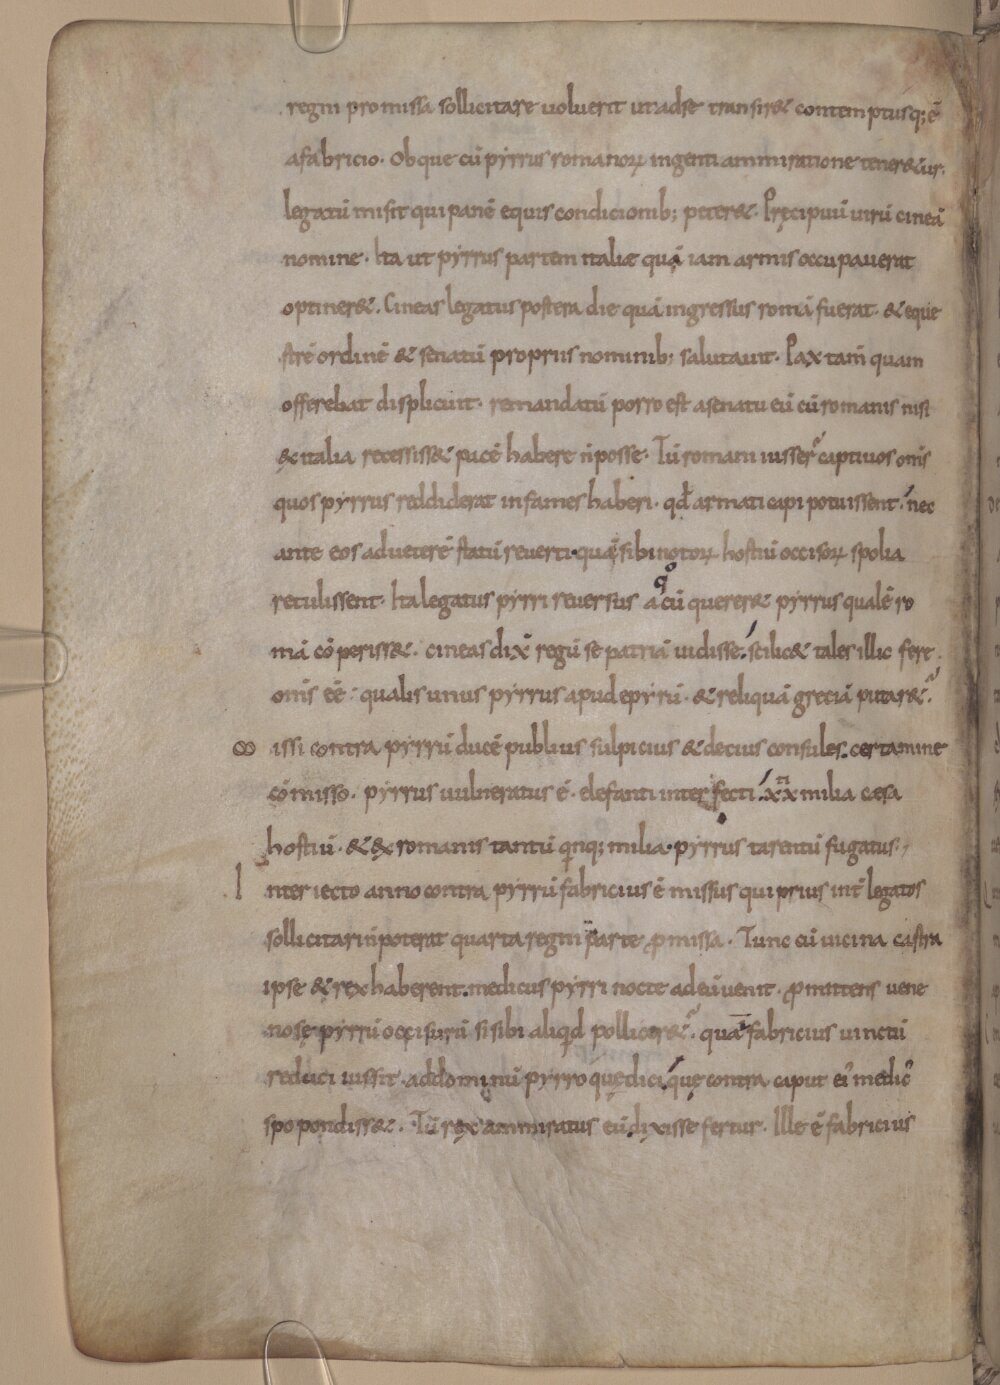 regni promissa sollicitare uoluerit ut adse transir& contemptusq; ē
afabricio. Obque cū pyrrus romanorꝝ ingenti ammiratione tener&ur.
legatū misit qui panē equis condicionib; peter&. Pręcipuū uirū cineā
nomine. Ita ut pyrrus partem italiæ quā iam armis occupauerat
optiner&. Cineas legatus postera die quā ingressus romā fuerat. & eque
strē ordinē & senatū propriis nominib; salutauit. Pax tam̄ quam
offerebat displicuit. remandatū porro est asenatu eū cū romanis nisi
& italia recessiss& pacē habere n̄ posse. Tū romani iusser̄ captiuos om̄s
quos pyrrus reddiderat infames haberi. qđ armati capi potuissent. nec
ante eos adueterē statū reuerti. quā sibi notorꝝ hostiū occisorꝝ spolia
retulissent. Ita legatus pyrri reuersus a quo cū querer& pyrrus qualē ro
mā cōperiss&. cineas dix̄ regū se patriā uidisse. scilic& tales illic fere
om̄s eē. qualis unus pyrrus apud epyrū. & reliquā greciā putar&ur.
∞ issi contra pyrrū ducē publius sulpicius & decius consules. certamine
cōmisso. pyrrus uulneratus ē. elefanti interfecti. xx milia cæsa
hostiū. & ex romanis tantū qinq; milia. pyrrus tarentū fugatus.
I nteriecto anno contra pyrrū fabricius ē missus qui prius int̄ legatos
sollicitari n̄ poterat quarta regni parte ꝓmissa. Tunc cū uicina castra
ipse & rex haberent. medicus pyrri nocte ad eū uenit. ꝓmittens uene
no se pyrrū occisurū si sibi aliqđ pollicer&ur. quā fabricius uinctū
reduci iussit. addominū pyrro quę dici quę contra caput ei᾽ medic᾽
spopondiss&. Tū rex ammiratus eū dixisse fertur. Ille ē fabricius